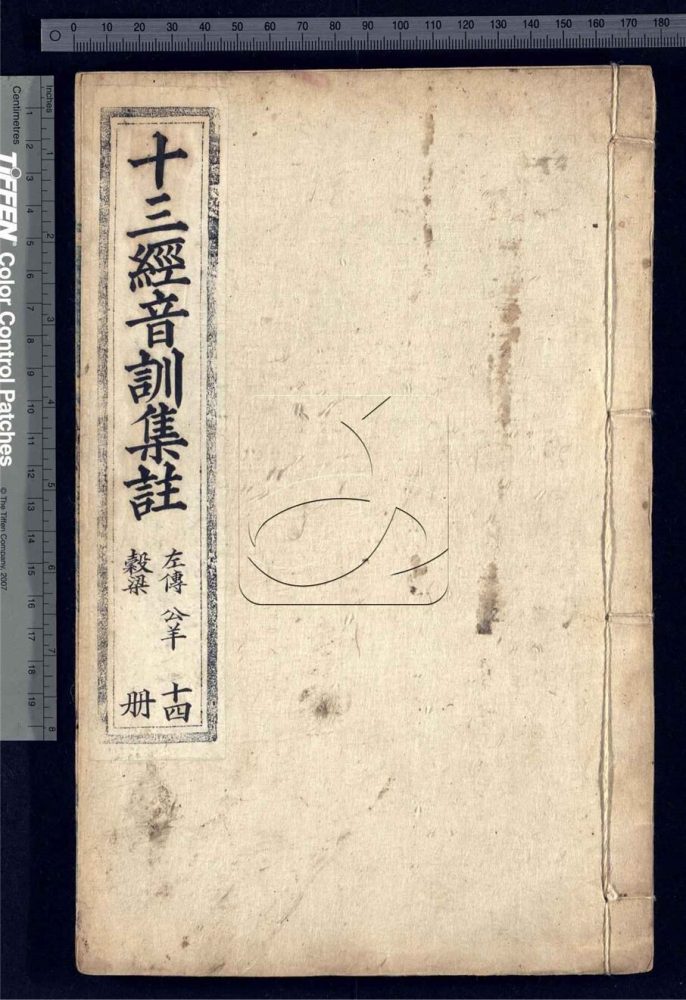 0 10 20 30 40 50 60 70 80 90 100 110 120 130 140 150 160 170 180
十三經音訓集註
左傳 公羊
穀梁
十四
册
Inches
1 2 3 4 5 6 7 8
Centimetres
1 2 3 4 5 6 7 8 9 10 11 12 13 14 15 16 17 18 19
TIFFEN Color Control Patches
© The Tiffen Company, 2007